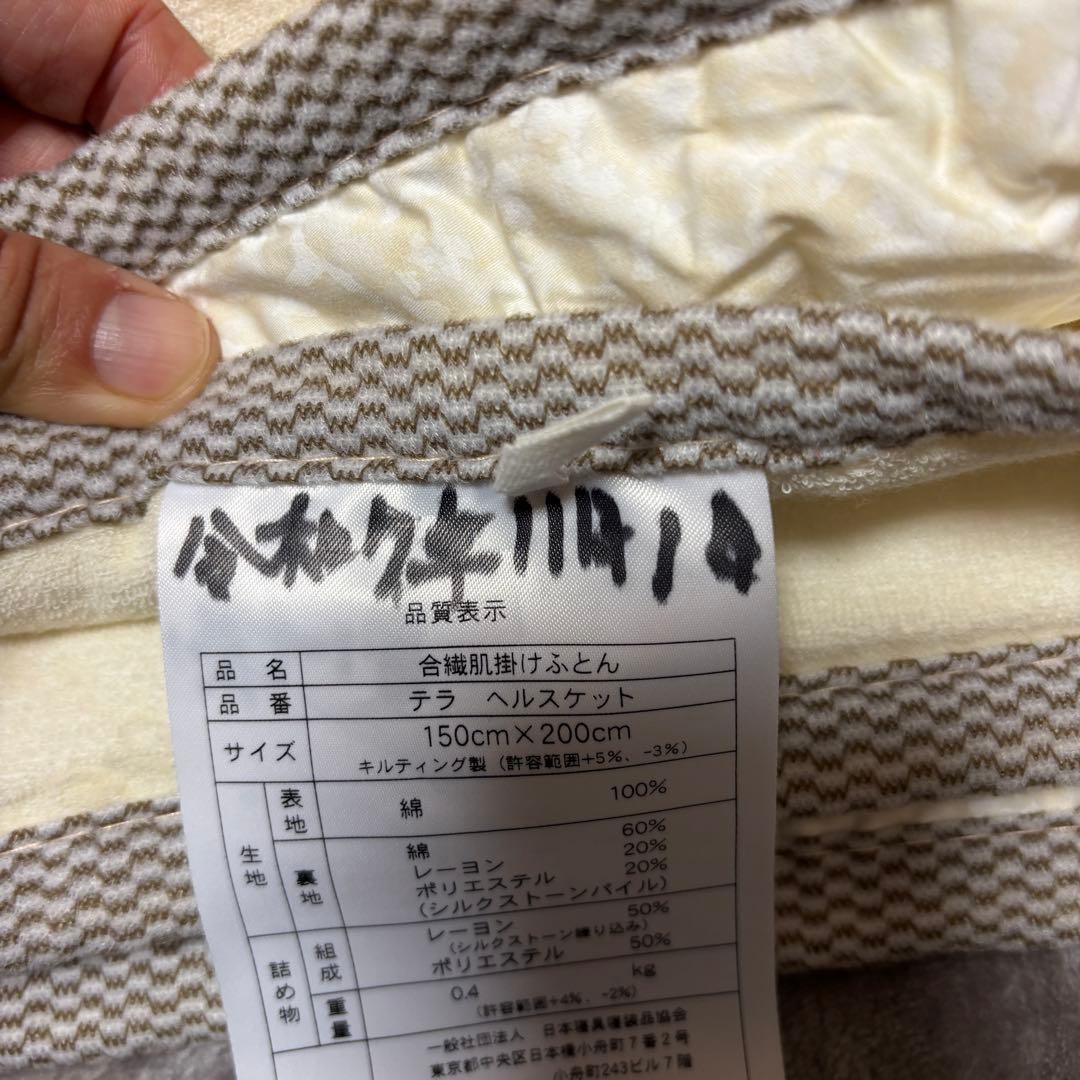 令和7年11月1日
品質表示
品 名 合繊肌掛けふとん
品 番 テラ ヘルスケット
サイズ 150cm×200cm
キルティング製（許容範囲+5%、-3%）
生地 表地 綿 100%
裏地 綿 60%
レーヨン 20%
ポリエステル 20%
（シルクストーンパイル）
詰め物 組成 レーヨン 50%
（シルクストーン練り込み）
ポリエステル 50%
重量 0.4 kg
（許容範囲+4%、-2%）
一般社団法人 日本寝具寝装品協会
東京都中央区日本橋小舟町7番2号
小舟町243ビル7階